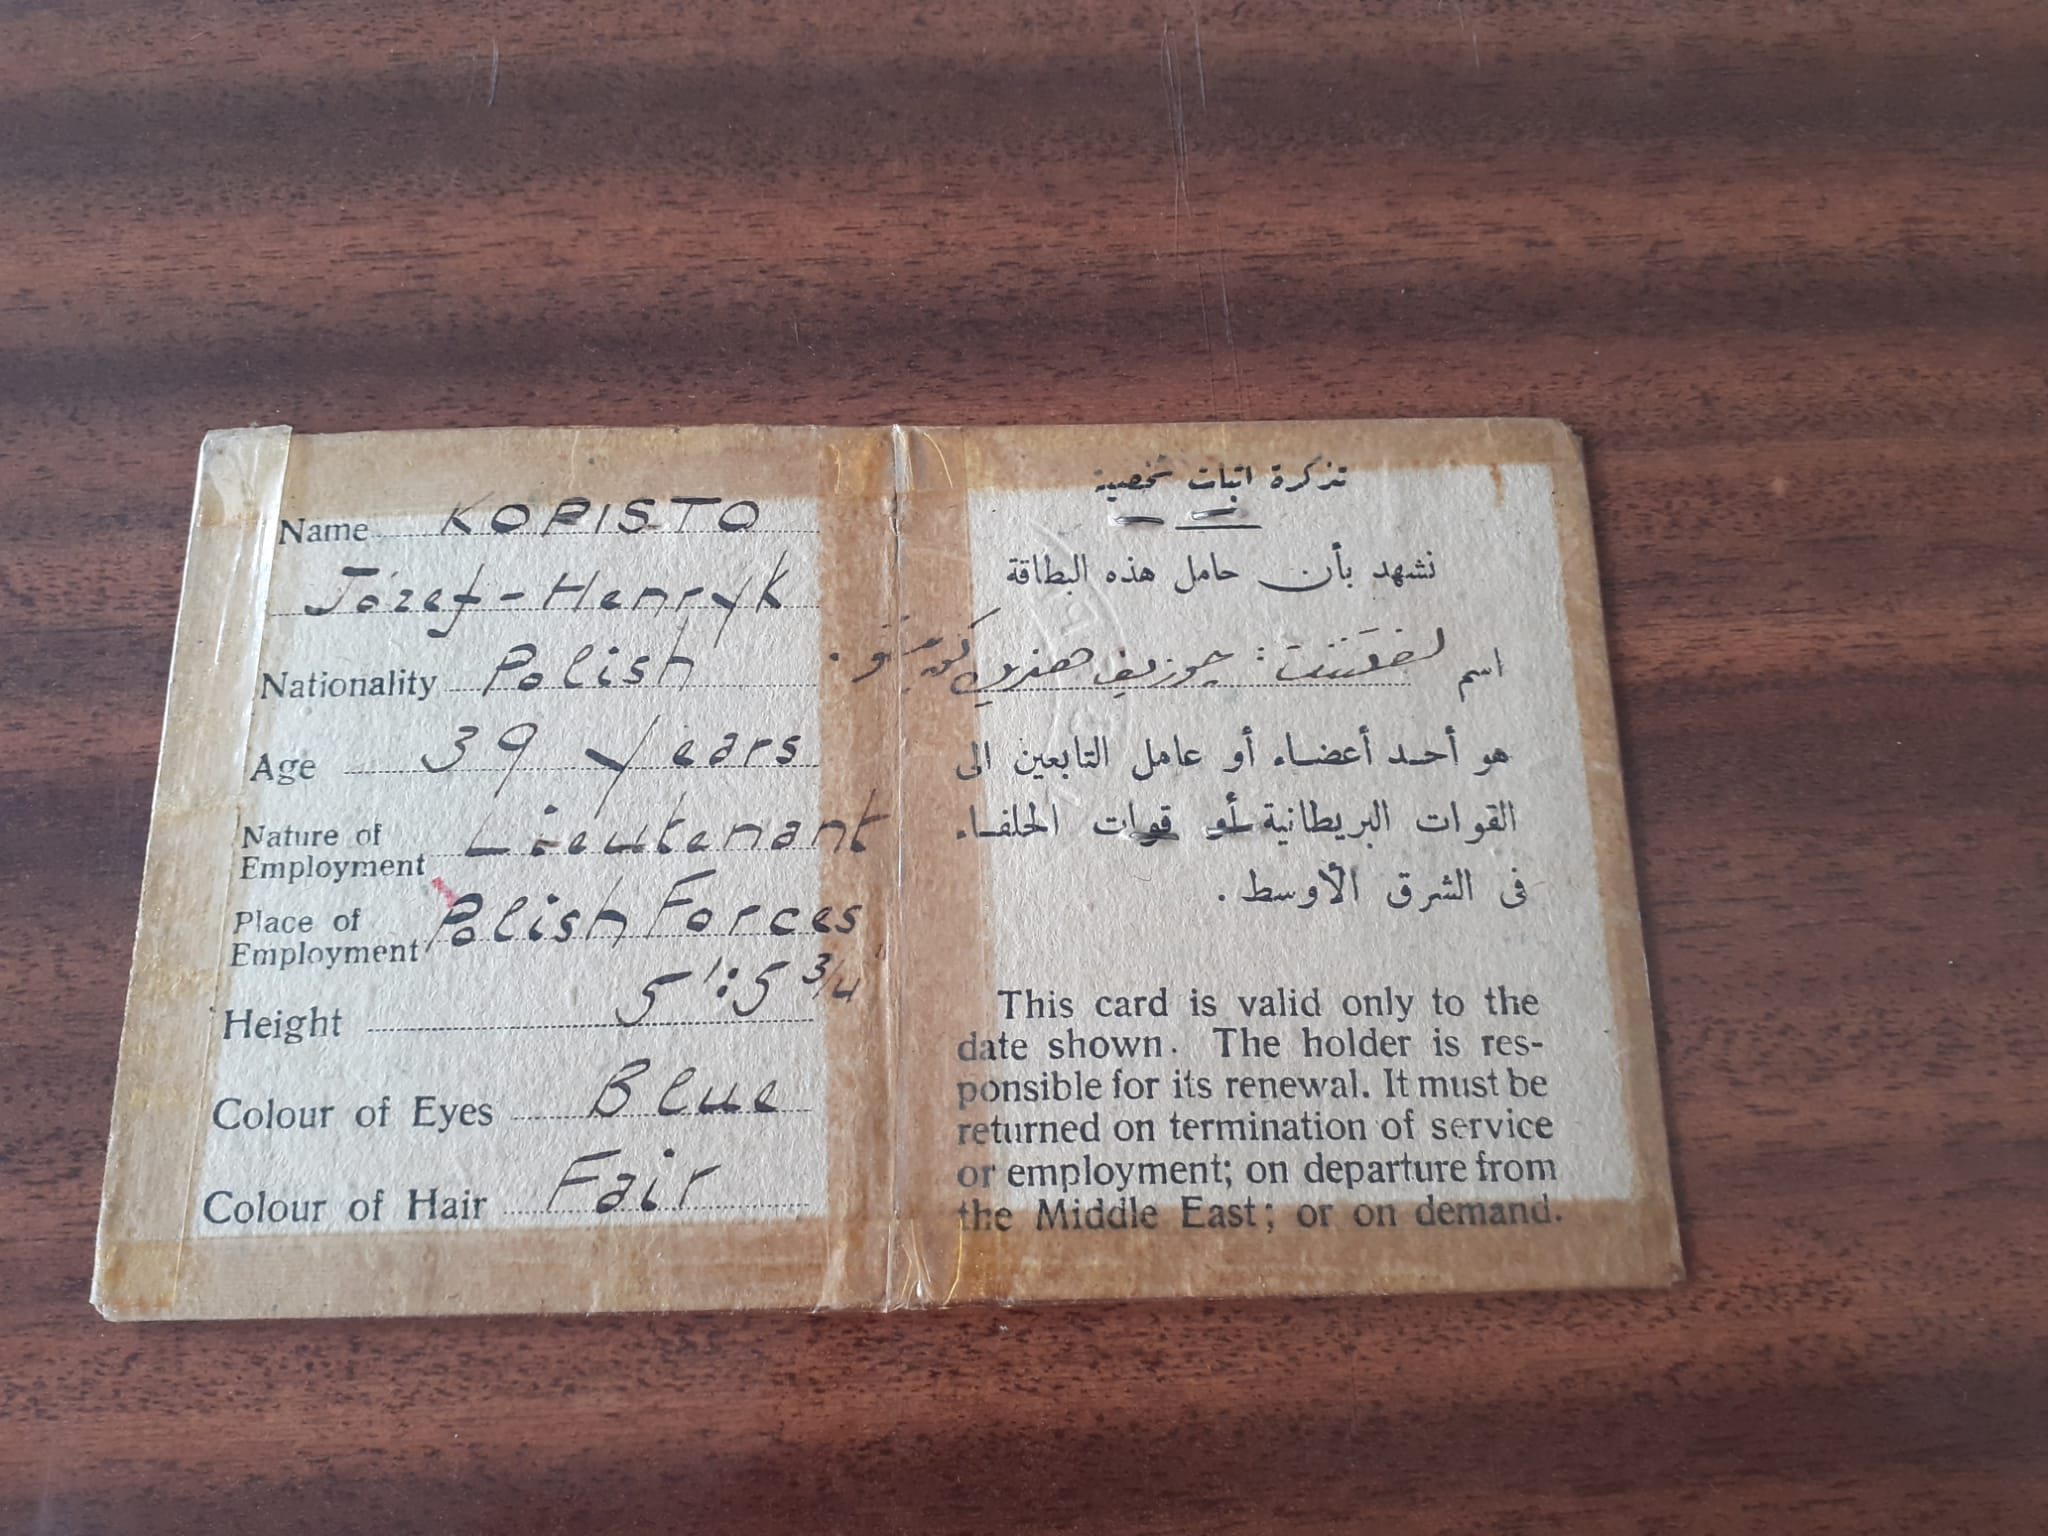 Name KOPISTO
Józef-Henryk
Nationality Polish
Age 39 Years
Nature of Employment Lieutenant
Place of Employment Polish Forces
Height 5':5 3/4"
Colour of Eyes Blue
Colour of Hair Fair
تذكرة اثبات شخصية
نشهد بأن حامل هذه البطاقة
اسم لفتننت : جوزيف هنري كوبستو .
هو أحد أعضاء أو عامل التابعين الى
القوات البريطانية أو قوات الحلفاء
فى الشرق الأوسط .
This card is valid only to the
date shown. The holder is res-
ponsible for its renewal. It must be
returned on termination of service
or employment; on departure from
the Middle East; or on demand.